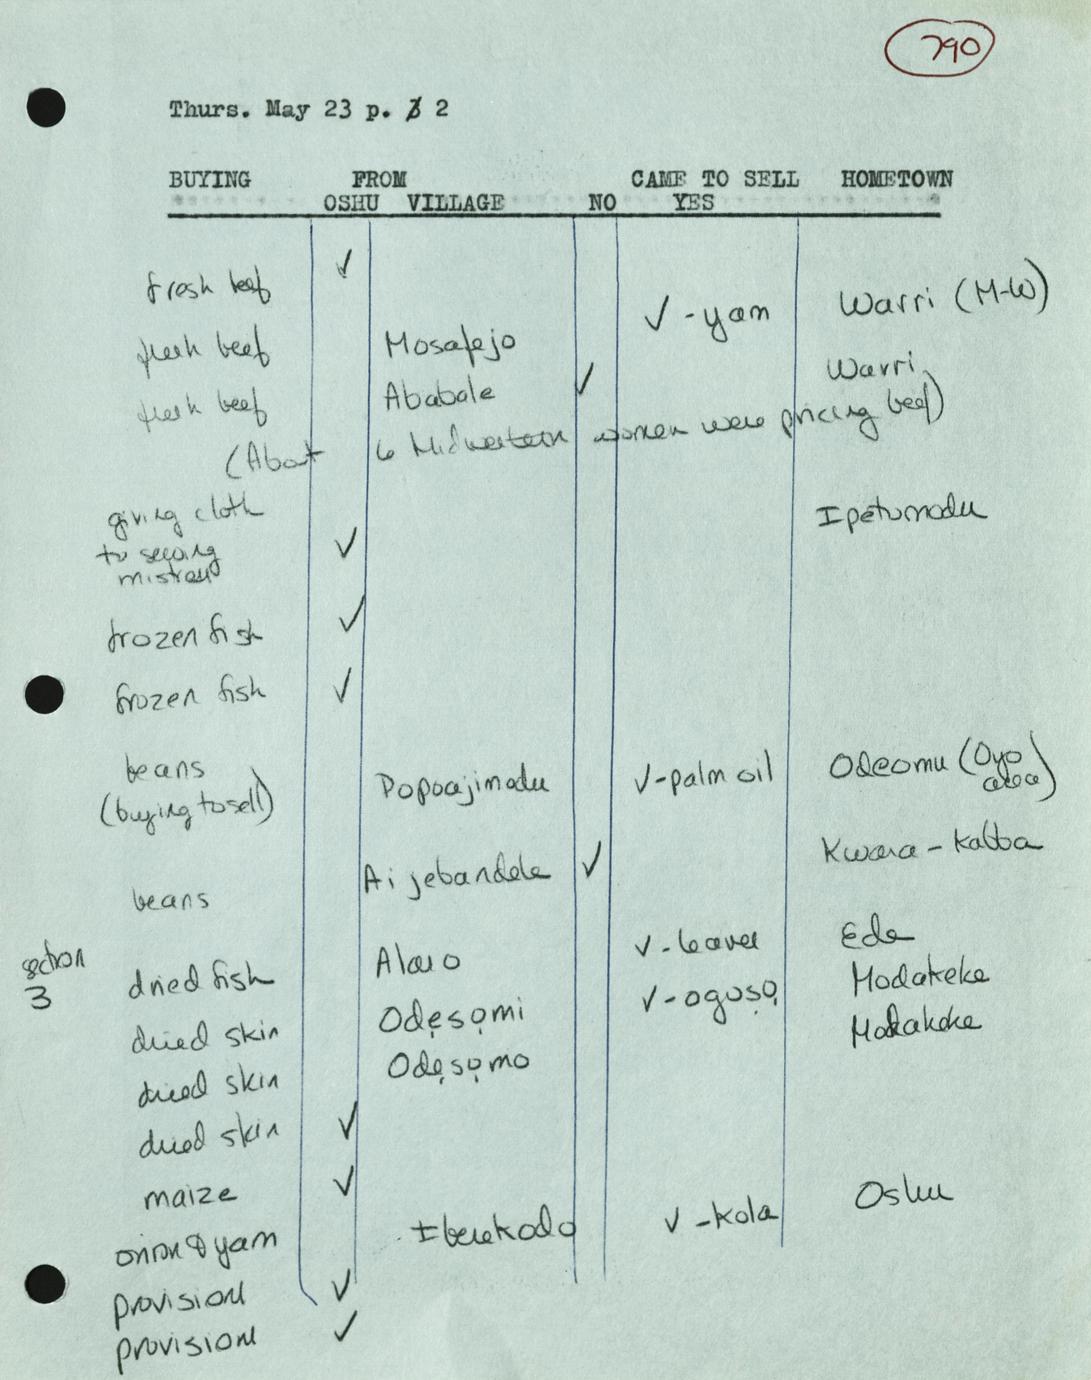 790
Thurs. May 23 p. 2
BUYING FROM CAME TO SELL HOMETOWN
OSHU VILLAGE NO YES
fresh beef ✓
✓ - yam Warri (M-W)
fresh beef Mosafejo
fresh beef Ababale ✓ Warri
(About 6 Midwestern women were pricing beef)
giving cloth Ipetumodu
to sewing ✓
mistress
frozen fish ✓
frozen fish ✓
beans Odeomu (Oyo
(buying to sell) ✓-palm oil area)
Kwara - Kabba
beans Aijebandele ✓
section dried fish Alaro ✓-leaves Ede
3
dried skin Odẹsọmi ✓-ogusọ Modakeke
dried skin Odẹsọmo Modakeke
dried skin ✓
maize ✓
onion & yam Iberekodo ✓-kola Oshu
provisions ✓
provisions ✓